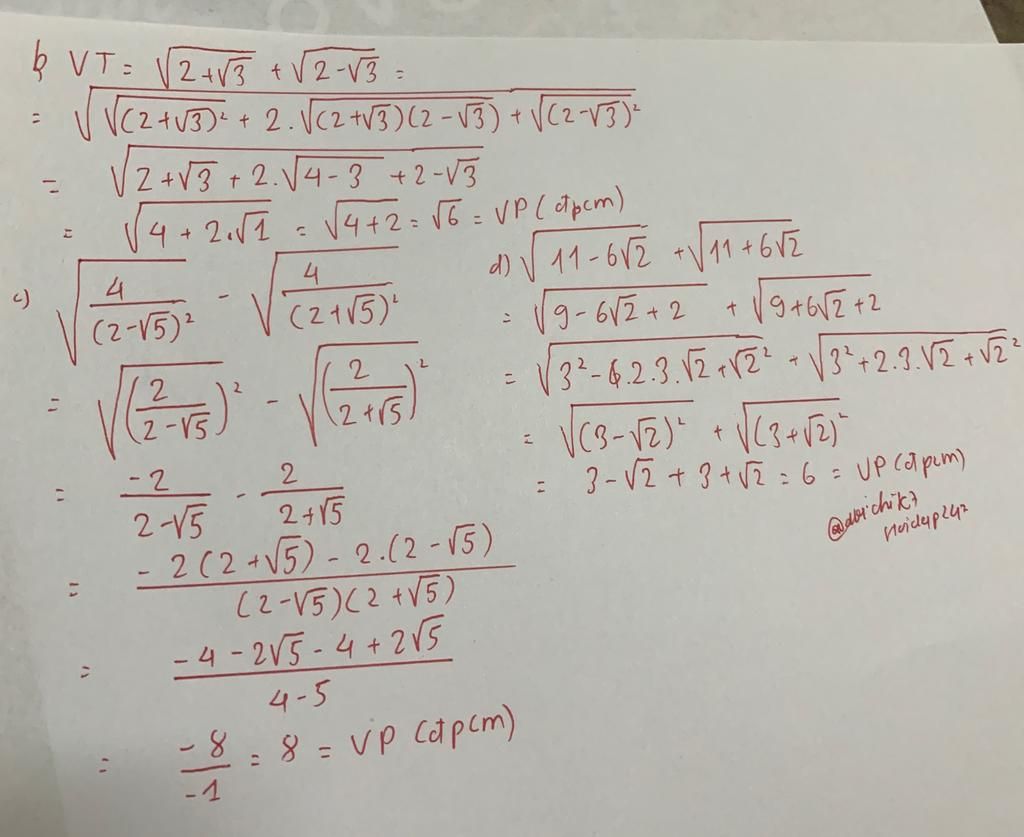 b VT = √(2+√3) + √(2-√3) =
= √(√(2+√3)² + 2.√(2+√3)(2-√3) + √(2-√3)²)
= √(2+√3 + 2.√(4-3) + 2-√3)
= √(4+2.√1) = √(4+2) = √6 = VP (đpcm)
c) √(4/(2-√5)²) - √(4/(2+√5)²)
= √(2/(2-√5))² - √(2/(2+√5))²
= -2/(2-√5) - 2/(2+√5)
= (-2(2+√5) - 2.(2-√5))/((2-√5)(2+√5))
= (-4-2√5-4+2√5)/(4-5)
= -8/-1 = 8 = VP (đpcm)
d) √(11-6√2) + √(11+6√2)
= √(9-6√2+2) + √(9+6√2+2)
= √(3²-.2.3.√2+√2²) + √(3²+2.3.√2+√2²)
= √(3-√2)² + √(3+√2)²
= 3-√2+3+√2 = 6 = VP (đpcm)